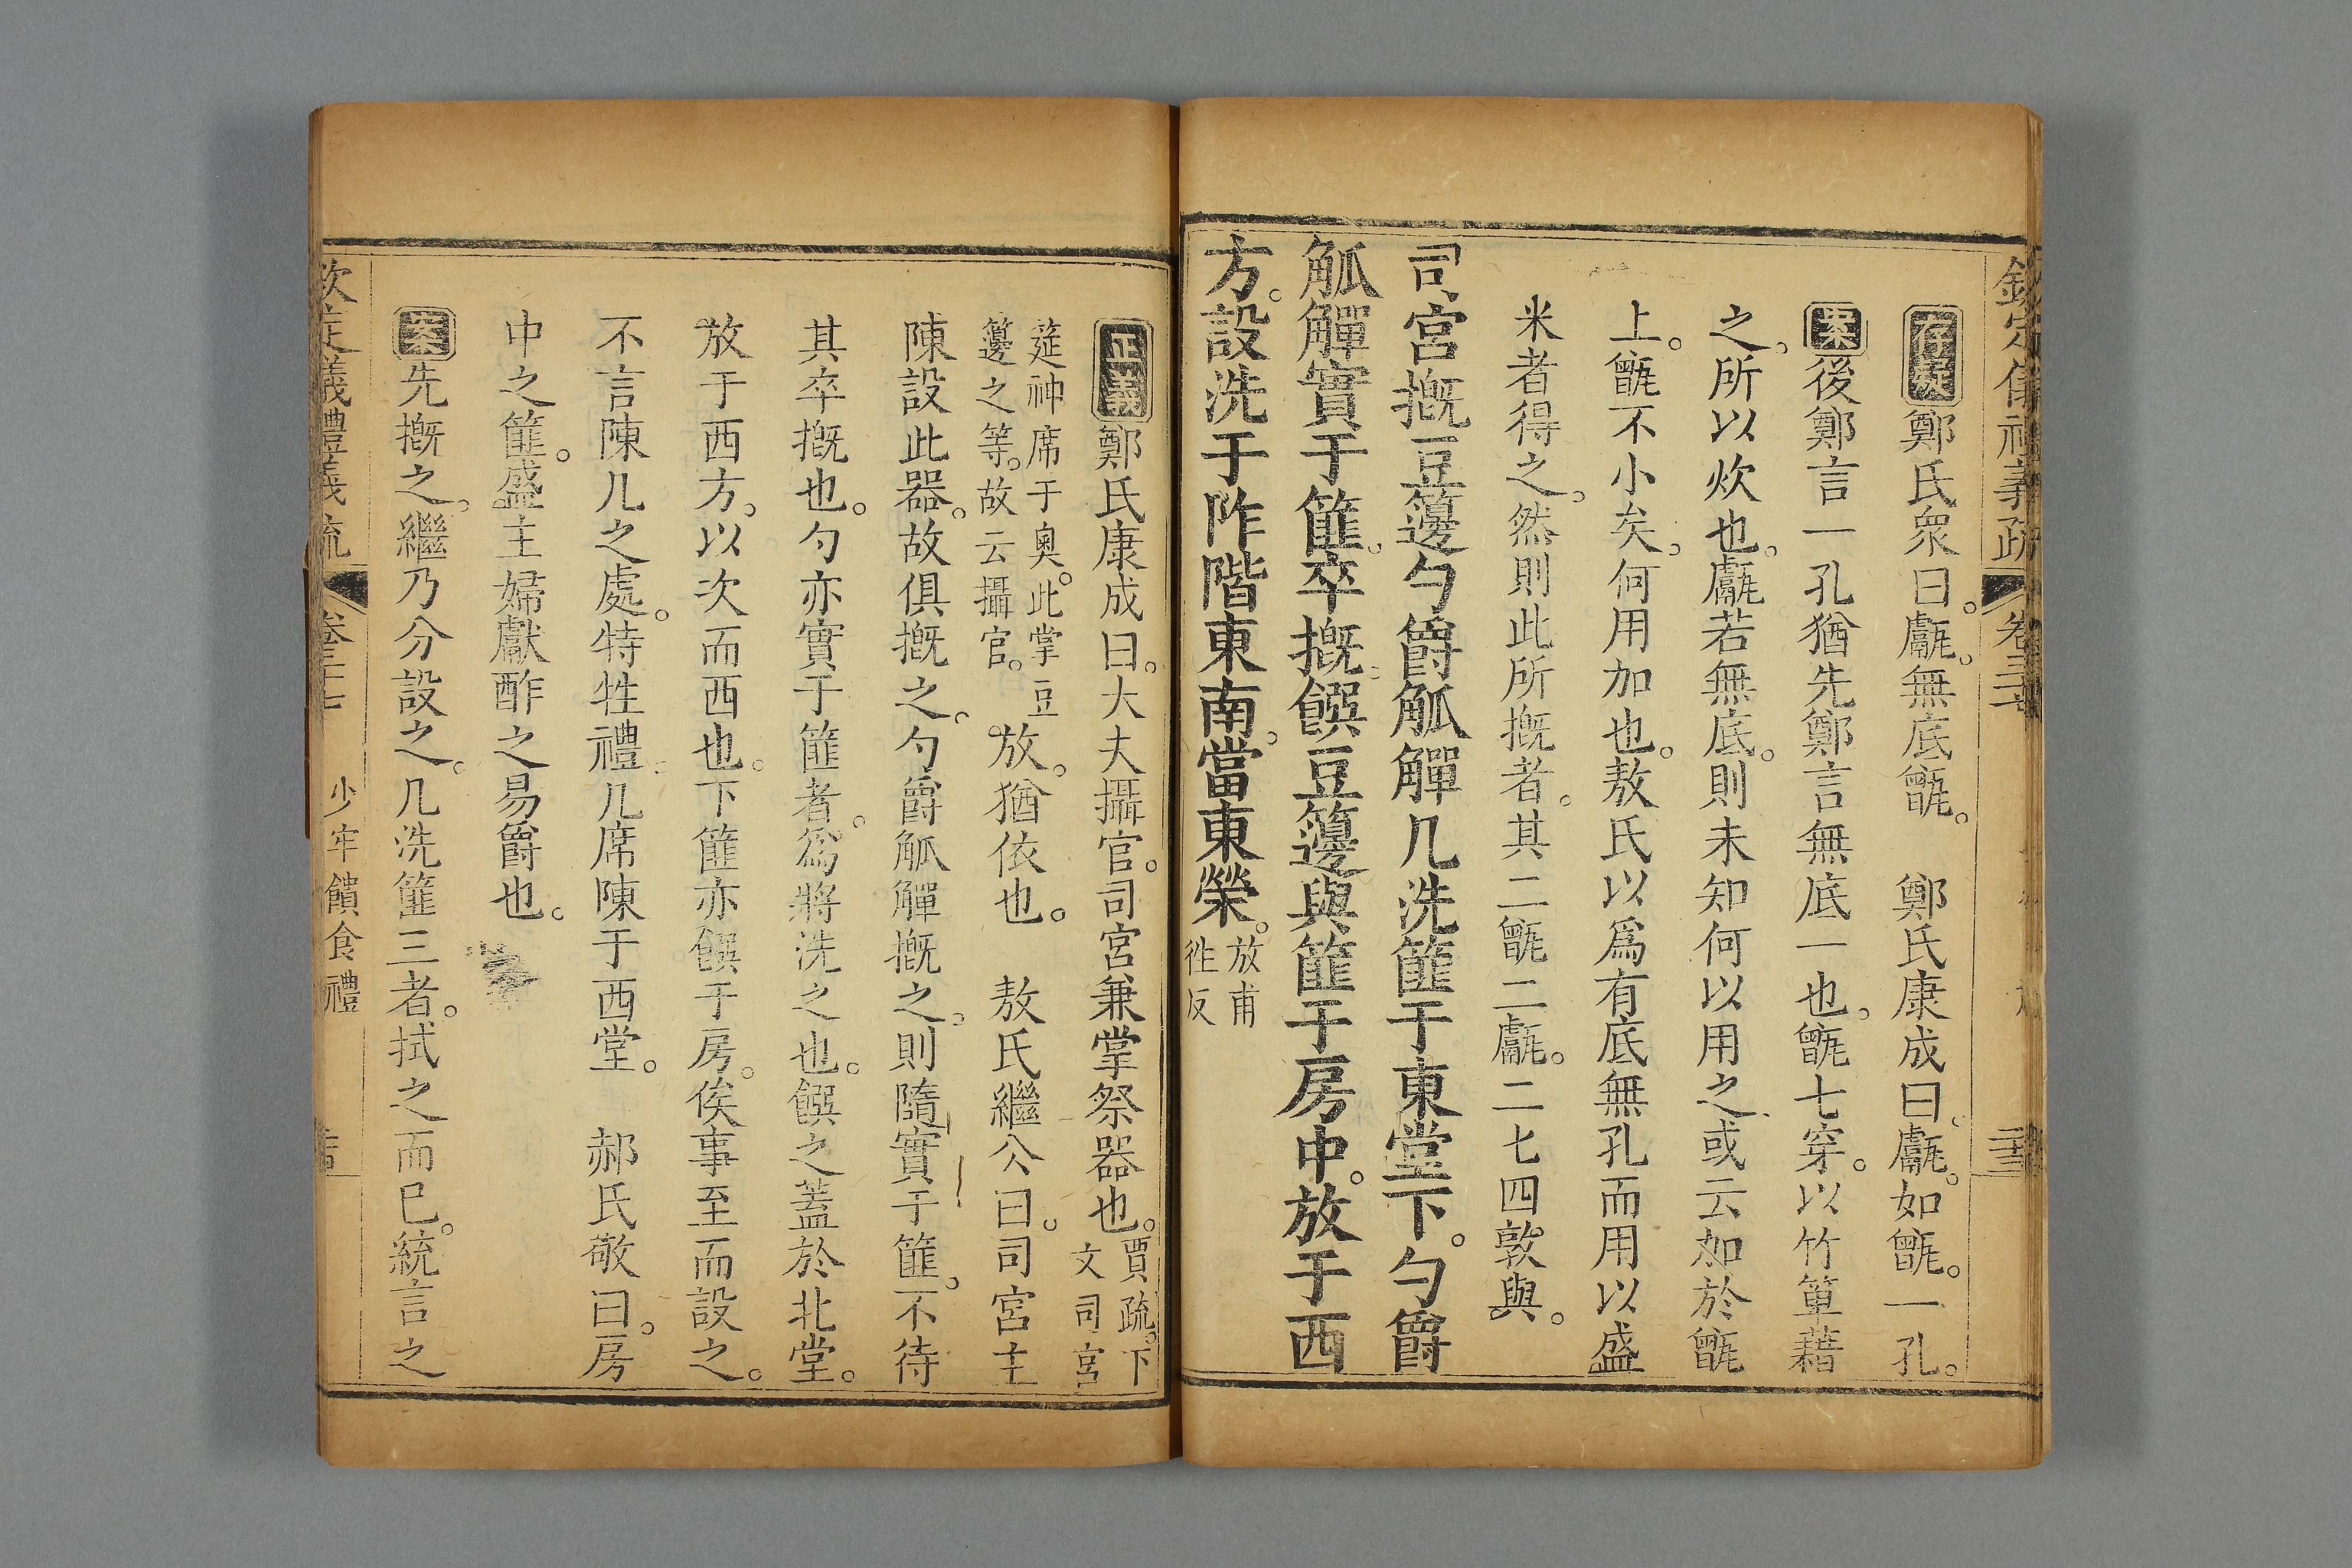 欽定儀禮義疏 卷三十七 二十三
存疑鄭氏衆曰。甗。無底甑。 鄭氏康成曰。甗。如甑。一孔。
案後鄭言一孔猶先鄭言無底一也。甑七穿。以竹箄藉
之。所以炊也。甗若無底。則未知何以用之。或云加於甑
上。甑不小矣。何用加也。敖氏以爲有底無孔而用以盛
米者得之。然則此所摡者。其二甑二甗。二匕四敦與。
司宮摡豆籩勺爵觚觶几洗篚于東堂下。勺爵
觚觶實于篚。卒摡。饌豆籩與篚于房中。放于西
方。設洗于阼階東南。當東榮。放甫
徃反
正義鄭氏康成曰。大夫攝官。司宮兼掌祭器也。賈疏。下
文司宮
筵神席于奧。此掌豆
籩之等。故云攝官。放。猶依也。 敖氏繼公曰。司宮主
陳設此器。故俱摡之。勺爵觚觶摡之。則隨實于篚。不待
其卒摡也。勺亦實于篚者。爲將洗之也。饌之蓋於北堂。
放于西方。以次而西也。下篚亦饌于房。俟事至而設之。
不言陳几之處。特牲禮。几席陳于西堂。 郝氏敬曰。房
中之篚。盛主婦獻酢之易爵也。
案先摡之。繼乃分設之。几洗篚三者。拭之而已。統言之
欽定儀禮義疏 卷三十七 少牢饋食禮